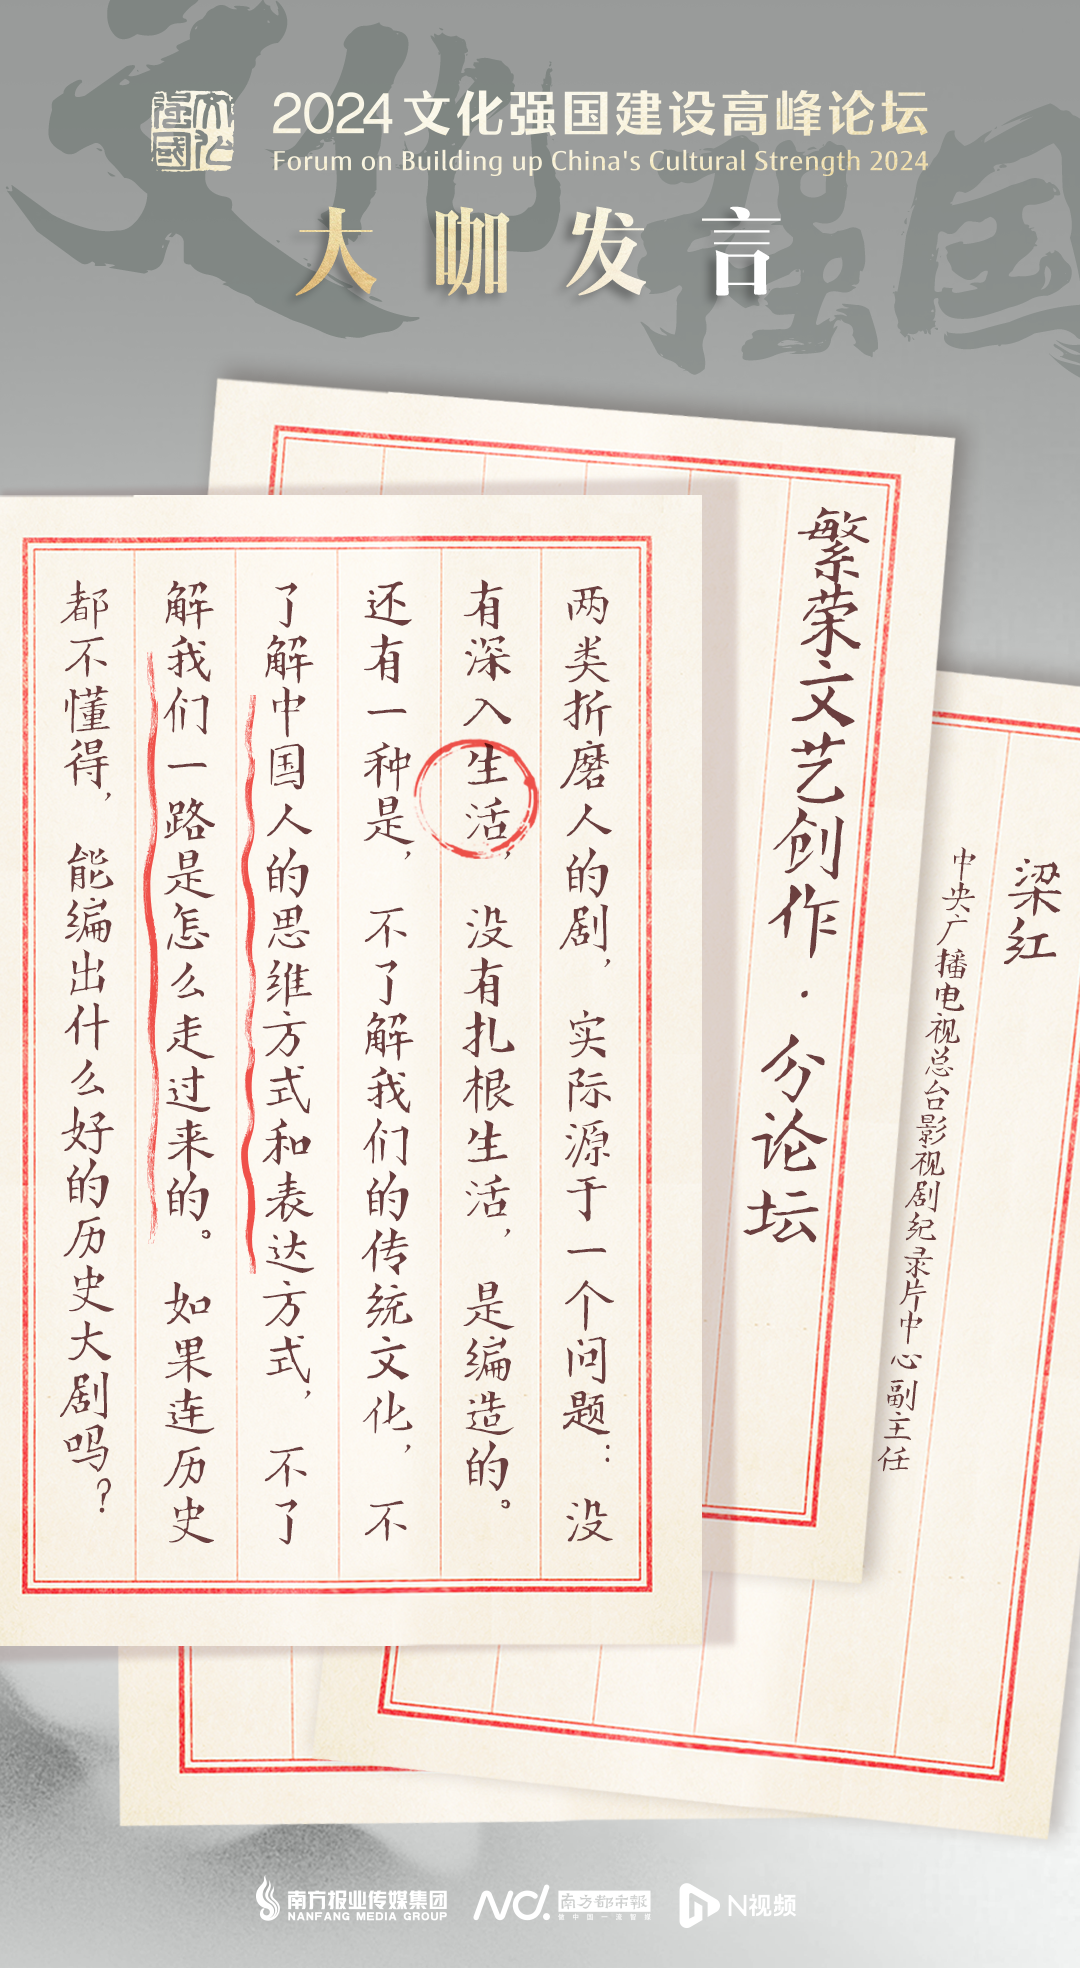 文化强国
2024文化强国建设高峰论坛
Forum on Building up China's Cultural Strength 2024
大咖发言
繁荣文艺创作·分论坛
梁红
中央广播电视总台影视剧纪录片中心副主任
两类折磨人的剧，实际源于一个问题：没
有深入生活，没有扎根生活，是编造的。
还有一种是，不了解我们的传统文化，不
了解中国人的思维方式和表达方式，不了
解我们一路是怎么走过来的。如果连历史
都不懂得，能编出什么好的历史大剧吗？
南方报业传媒集团
NANFANG MEDIA GROUP
南方都市報
N视频